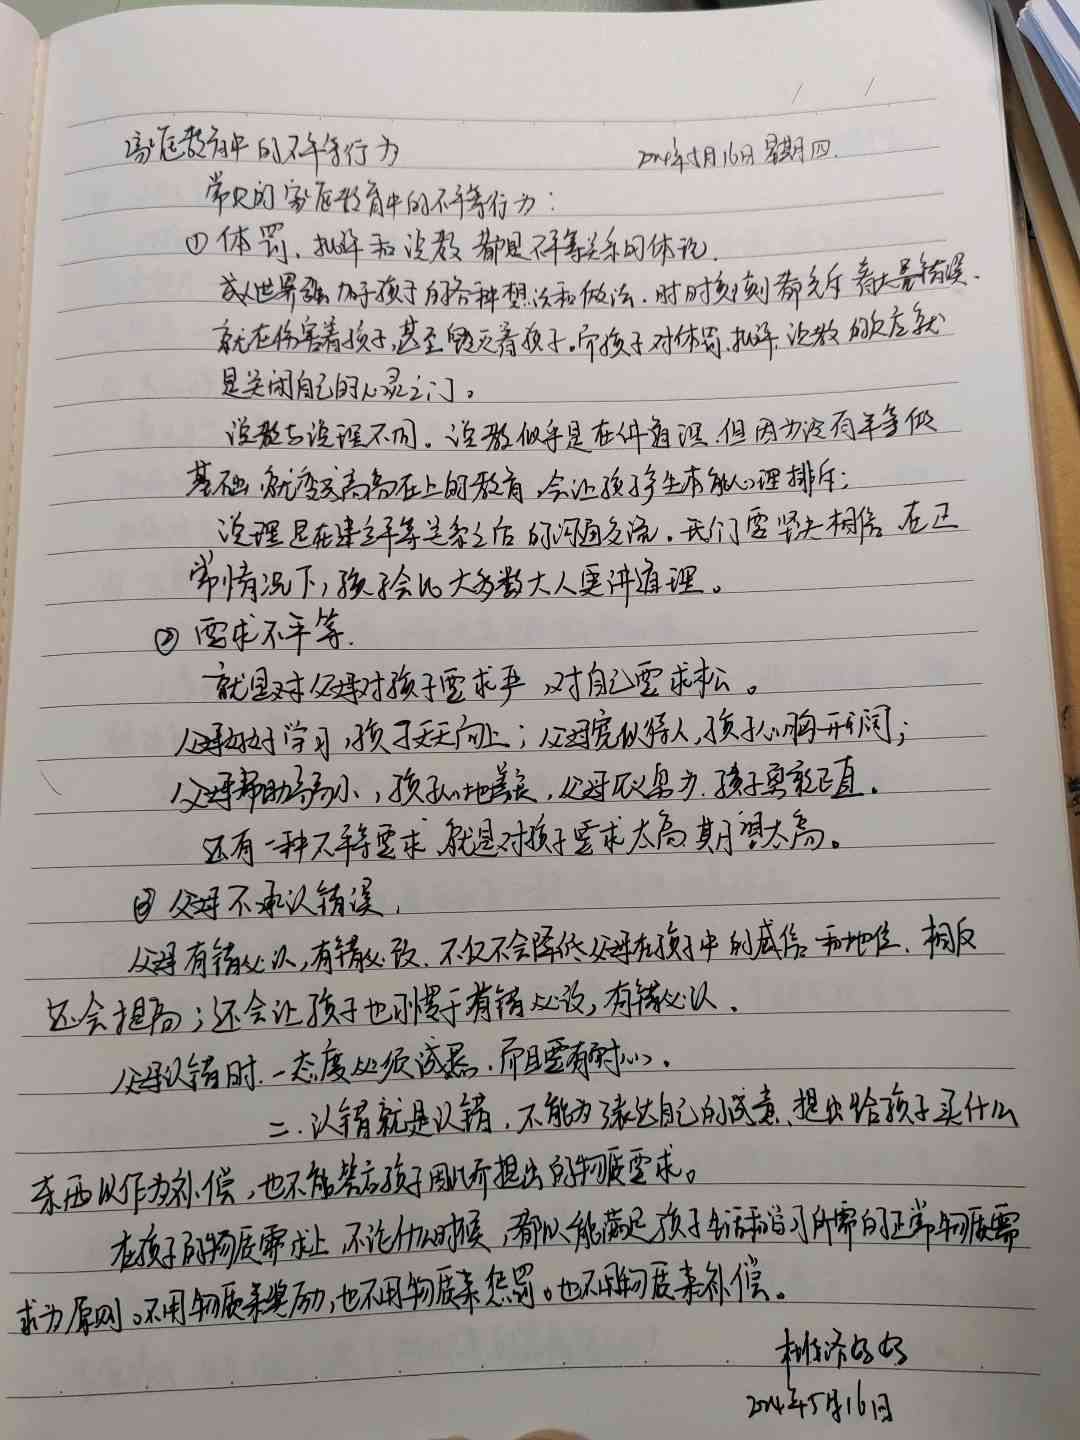 家庭教育中的不平等行为 2024年5月16日 星期四.
常见的家庭教育中的不平等行为:
① 体罚、批评和说教都是不平等关系的体现.
成人世界强加于孩子的各种想法和做法.时时刻刻都充斥着大量错误.
就在伤害着孩子,甚至毁灭着孩子。而孩子对体罚、批评、说教的反应就
是关闭自己的心灵之门。
说教与说理不同。说教似乎是在讲道理.但因为没有平等做
基础,就变成高高在上的教育,会让孩子产生本能心理排斥;
说理是在建立平等关系之后的沟通交流。我们要坚决相信在正
常情况下,孩子会比大多数大人更讲道理。
② 要求不平等.
就是对父母对孩子要求严,对自己要求松。
父母好好学习,孩子天天向上;父母宽以待人,孩子心胸开阔;
父母帮助弱小,孩子心地善良,父母 孩子勇敢正直。
还有一种不平等要求,就是对孩子要求太高,期望太高。
③ 父母不承认错误.
父母有错必认,有错必改.不仅不会降低父母在孩子中的威信和地位.相反
还会提高;还会让孩子也习惯于有错必改,有错必认.
父母认错时.一态度必须诚恳.而且要有耐心。
二.认错就是认错.不能为了表达自己的诚意,提出给孩子买什么
东西以作为补偿,也不能答应孩子因此所提出的物质要求。
在孩子的物质需求上,不论什么时候,都以能满足孩子生活和学习所需的正常物质需
求为原则。不用物质来奖励,也不用物质来惩罚。也不用物质来补偿。
2024年5月16日